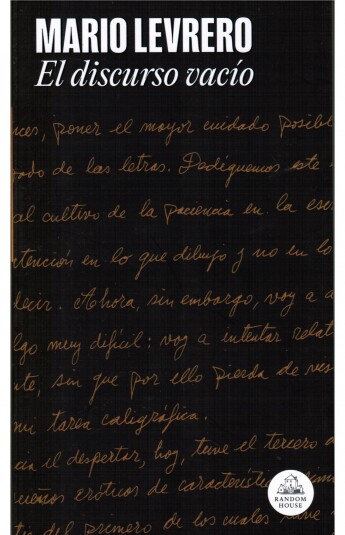 MARIO LEVRERO
El discurso vacío
ces, poner el mayor cuidado posibl
ado de las letras. Dediquemos este
al cultivo de la paciencia en la esc
tención en lo que dibujo y no en lo
decir. Ahora, sin embargo, voy a a
lgo muy difícil: voy a intentar relat
te, sin que por ello pierda de vis
mi tarea caligráfica.
cia el despertar, hoy, tuve el tercero d
ueños eróticos de característic
del primero de los cuales
RANDOM
HOUSE